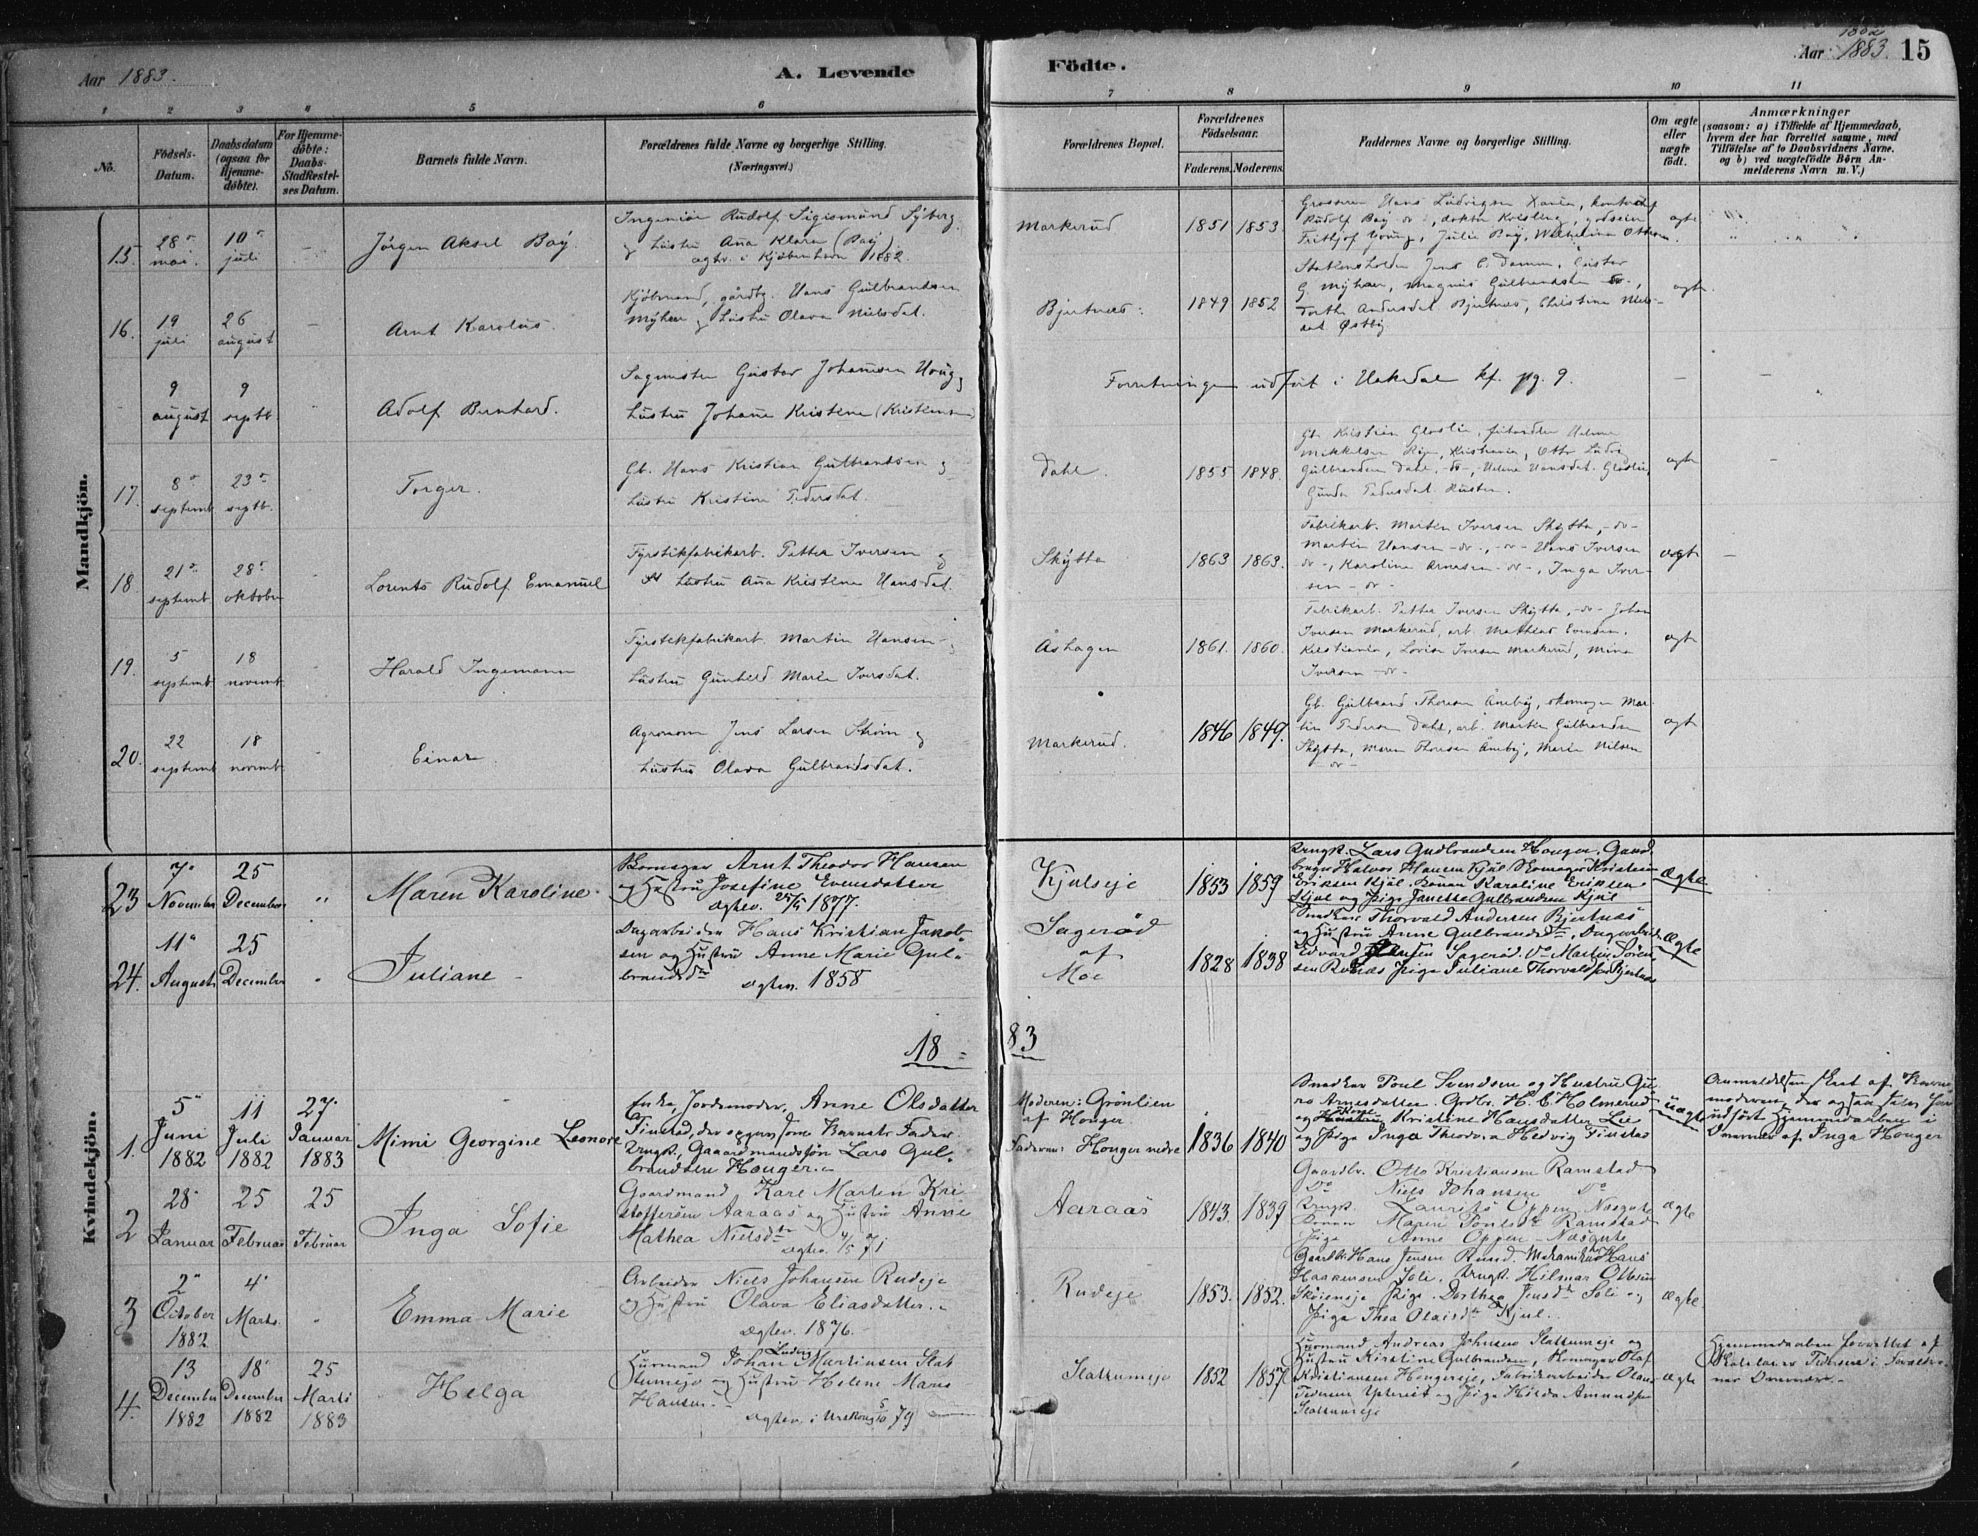 Aar 1883.
A. Levende
Födte.
1882
Aar 1883. 15
1 2 3 4 5 6 7 8 9 10 11
No.
Födsels-
Datum.
Daabsdatum
(ogsaa for
Hjemme-
døbte).
For Hjemme-
døbte:
Daabs-
Stadfæstel-
ses Datum.
Barnets fulde Navn.
Forældrenes fulde Navne og borgerlige Stilling.
(Næringsvei.)
Forældrenes Bopæl.
Forældrenes
Födselsaar.
Faderens. Moderens.
Faddernes Navne og borgerlige Stilling.
Om ægte
eller
uægte
födt.
Anmærkninger
(saasom: a) i Tilfælde af Hjemmedaab,
hvem der har forrettet samme, med
Tilföielse af to Daabsvidners Navne,
og b) ved uægtefödte Börn An-
melderens Navn m. V.)
Mandkjön.
15. 28de mai. 10de juli
Jörgen Aksel Boy
Ingeniör Rudolf Sigismund Syberg
og hustru Ana Klara (Boy)
ægtv. i Kjöbenhavn 1882.
Markerud 1851 1853
ægte
16. 19 juli 26 august
Arnt Karolus.
Kjöbmand, gårdbr. Hans Gulbrandsen
Myhrer og hustru Olava Nielsdat.
Bjertnæs. 1849 1852
G. Myhrer, Magnus Gulbrandsen do.,
Dorthe Andersdat. Bjertnæs, Christine Niels-
dat. Östby
ægte
9 august 9 septb.
Adolf Bernhard.
Sagmester Gustav Johansen Houg og
hustru Johanne Kristine (Kristiansen)
Forretningen udfört i Hakedal kf. pg. 9.
17. 8de septemb. 23de septb.
Torger.
Gb. Hans Kristian Gulbrandsen og
hustru Kristine Pedersdat.
Dahl. 1855 1848.
ægte
18 21de septemb. 28de oktober
Lorents Rudolf Emanuel
Fyrstikfabrikarb. Petter Iversen og
hustru Ana Kristine Hansdat.
Skytta 1863 1863.
Fabrikarb. Martin Iversen Skytta, -do-
Martin Hansen -do-, -do- Hans Iversen
-do-, Karoline Arnesen -do-, Inga Iver-
sen -do-
ægte
19. 5 septemb. 18 novemb.
Harald Ingemann
Fyrstikfabrikarb. Martin Hansen og
hustru Gunhild Marie Iversdat.
Åshagen 1861. 1860.
Fabrikarb. Petter Iversen Skytta, -do- Johan
Iversen Markerud, arb. Mathias Evensen,
Kristiania, Lovise Iversen Markerud, Mina
Iversen -do-
ægte
20. 22 septemb. 18 novemb.
Einar.
Agronom Jens Larsen Ström og
hustru Olava Gulbrandsdat.
Markerud. 1846 1849.
Gb. Gulbrand Thoresen Åneby, skomager Mar-
tin Pedersen Dahl, arb. Martin Gulbrandsen
Skytta, Maren Thoresen Åneby, Marie Nilsen
-do-
ægte
Kvindekjön.
23 7de November 25 December
Maren Karoline.
Skomager Arnt Theodor Hansen
og Hustru Josefine Evensdatter
Ægtev. 1877.
Kjulseje 1853 1859
Ungk. Lars Gudbrandsen Honger, Gaard-
bruger Halvor Hansen Kjul, Skomager Kristian
Eriksen Kjul, Konen Karoline Eriksen
Kjul og Pige Janette Gulbrandsen Kjul
Ægte
24. 11te August 25 December
Juliane
Dagarbeider Hans Kristian Jakob-
sen og Hustru Anne Marie Gul-
brandsdtr.
Ægtev. 1858
Sageröd
af
Moe 1828 1838
Snedker Thorvald Andersen Bjertnæs
og Hustru Anne Gulbrandsdtr., Dagarbeider
Edvard Hansen Sageröd, Do Martin Sören-
sen Rønæs Pige Juliane Thorvaldsen Bjertnæs
Ægte
18 = 83
1. 5te Juni 1882 11 Juli 1882 27 Januar 1883
Mimi Georgine Leonore
Enke, Jordemoder, Anne Olsdatter
Tinstad, der opgav som Barnets Fader
Ungk., Gaardmandssøn Lars Gul-
brandsen Honger.
Moderen: Grönlien
af Honger
Faderen: Honger nedre 1836 1840
Snedker Poul Svendsen og Hustru Gu-
ro Arnesdatter, Grdbr. H. C. Holmerud
og Kone Kristine Hansdatter Lie
og Pige Inga Theodora Hedvig Tinstad
uægte
Anmeldelsen skeet af Barne-
moderen, der ogsaa selv har
udfört Hjemmedaaben i
Overvær af Inga Honger
2 28 Januar 25 Februar 25 Februar
Inga Sofie
Gaardmand Karl Martin Kri-
stoffersen Aaraas og Hustru Anne
Mathea Nielsdtr.
Ægtev. 4/5 71
Aaraas 1843. 1839
Gaardbr. Otto Kristiansen Ramstad
Do Niels Johansen Do
Ungk. Laurits Oppen Næsgate
Konen Maren Poulsdtr. Ramstad
Pige Anne Oppen - Næsgate
ægte
3 2de October 1882 4de Marts.
Emma Marie
Arbeider Niels Johansen Rudeje
og Hustru Olava Eliasdatter.
Ægtev. 1876.
Rudeje 1853. 1852.
Gaardbr. Hans Jensen Ruud, Mekanikus Hans
Haakensen Soli, Ungk. Hilmar Olsen
Skøienseje Pige Dorthea Jensdtr. Soli og
Pige Thea Olaisdtr. Kjul.
ægte
4. 13 December 1882 18de December 1882 25 Marts 1883
Helga
Husmand Johan Ludvig Martinsen Slat-
tumeje og Hustru Helene Marie
Hansen.
Ægtev. i Urskoug 5/10 79
Slattumeje 1852 1857
Husmand Andreas Johnsen Slattumeje og
Hustru Kirstine Gulbrandsen, Skomager Olaf
Kristiansen Hongerseje, Fabrikarbeider Olaus
Pedersen og Pige Hilda Amundsen
Slattumeje
ægte
Hjemmedaaben forrettet af
Skolelærer Pedersen i Forældre-
nes Overvær.